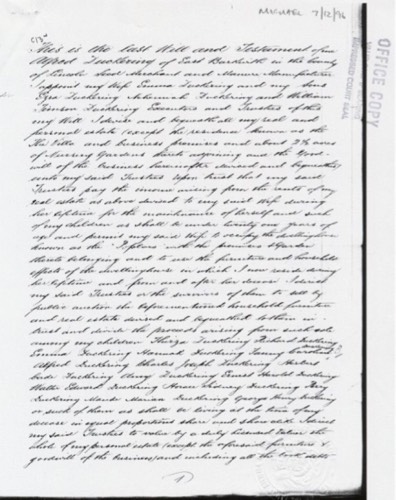 MICHAEL 7/12/96
OFFICE COPY
This is the last Will and Testament of me
Alfred Duckering of East Barkwith in the County
of Lincoln Seed Merchant and Manure Manufacturer
I appoint my Wife Emma Duckering and my Sons
Duckering Duckering and William
Duckering Executors and Trustees of this
my Will I devise and bequeath all my real and
personal estate (except the residence known as the
Villa and business premises and about 2½ acres
of Nursery Gardens thereto adjoining and the Good
will of the business hereinafter devised and bequeathed)
unto my said Trustees Upon trust that my said
Trustees pay the income arising from the rents of my
real estate as above devised to my said Wife during
her lifetime for the maintenance of herself and such
of my children as shall be under twenty one years of
age and permit my said Wife to occupy the dwellinghouse
known as the with the premises & Garden
thereto belonging and to use the furniture and household
effects of the dwellinghouse in which I now reside during
her lifetime and from and after her decease I direct
my said Trustees or the survivors of them to sell by
public auction the beforementioned household furniture
and real estate devised and bequeathed to them in
trust and divide the proceeds arising from such sale
among my children Thirza Duckering Richard Duckering
Emma Duckering Hannah Duckering Fanny Duckering
Alfred Duckering Charles Joseph Duckering
Duckering Duckering Ernest Harold Duckering
Walter Edward Duckering Horace Sidney Duckering
Duckering Maude Marian Duckering George Henry Duckering
or such of them as shall be living at the time of my
decease in equal proportions share and share alike I direct
my said Trustees to value by a duly licensed Valuer the
whole of my personal estate (except the aforesaid furniture &
goodwill of the business) and including all the book debts